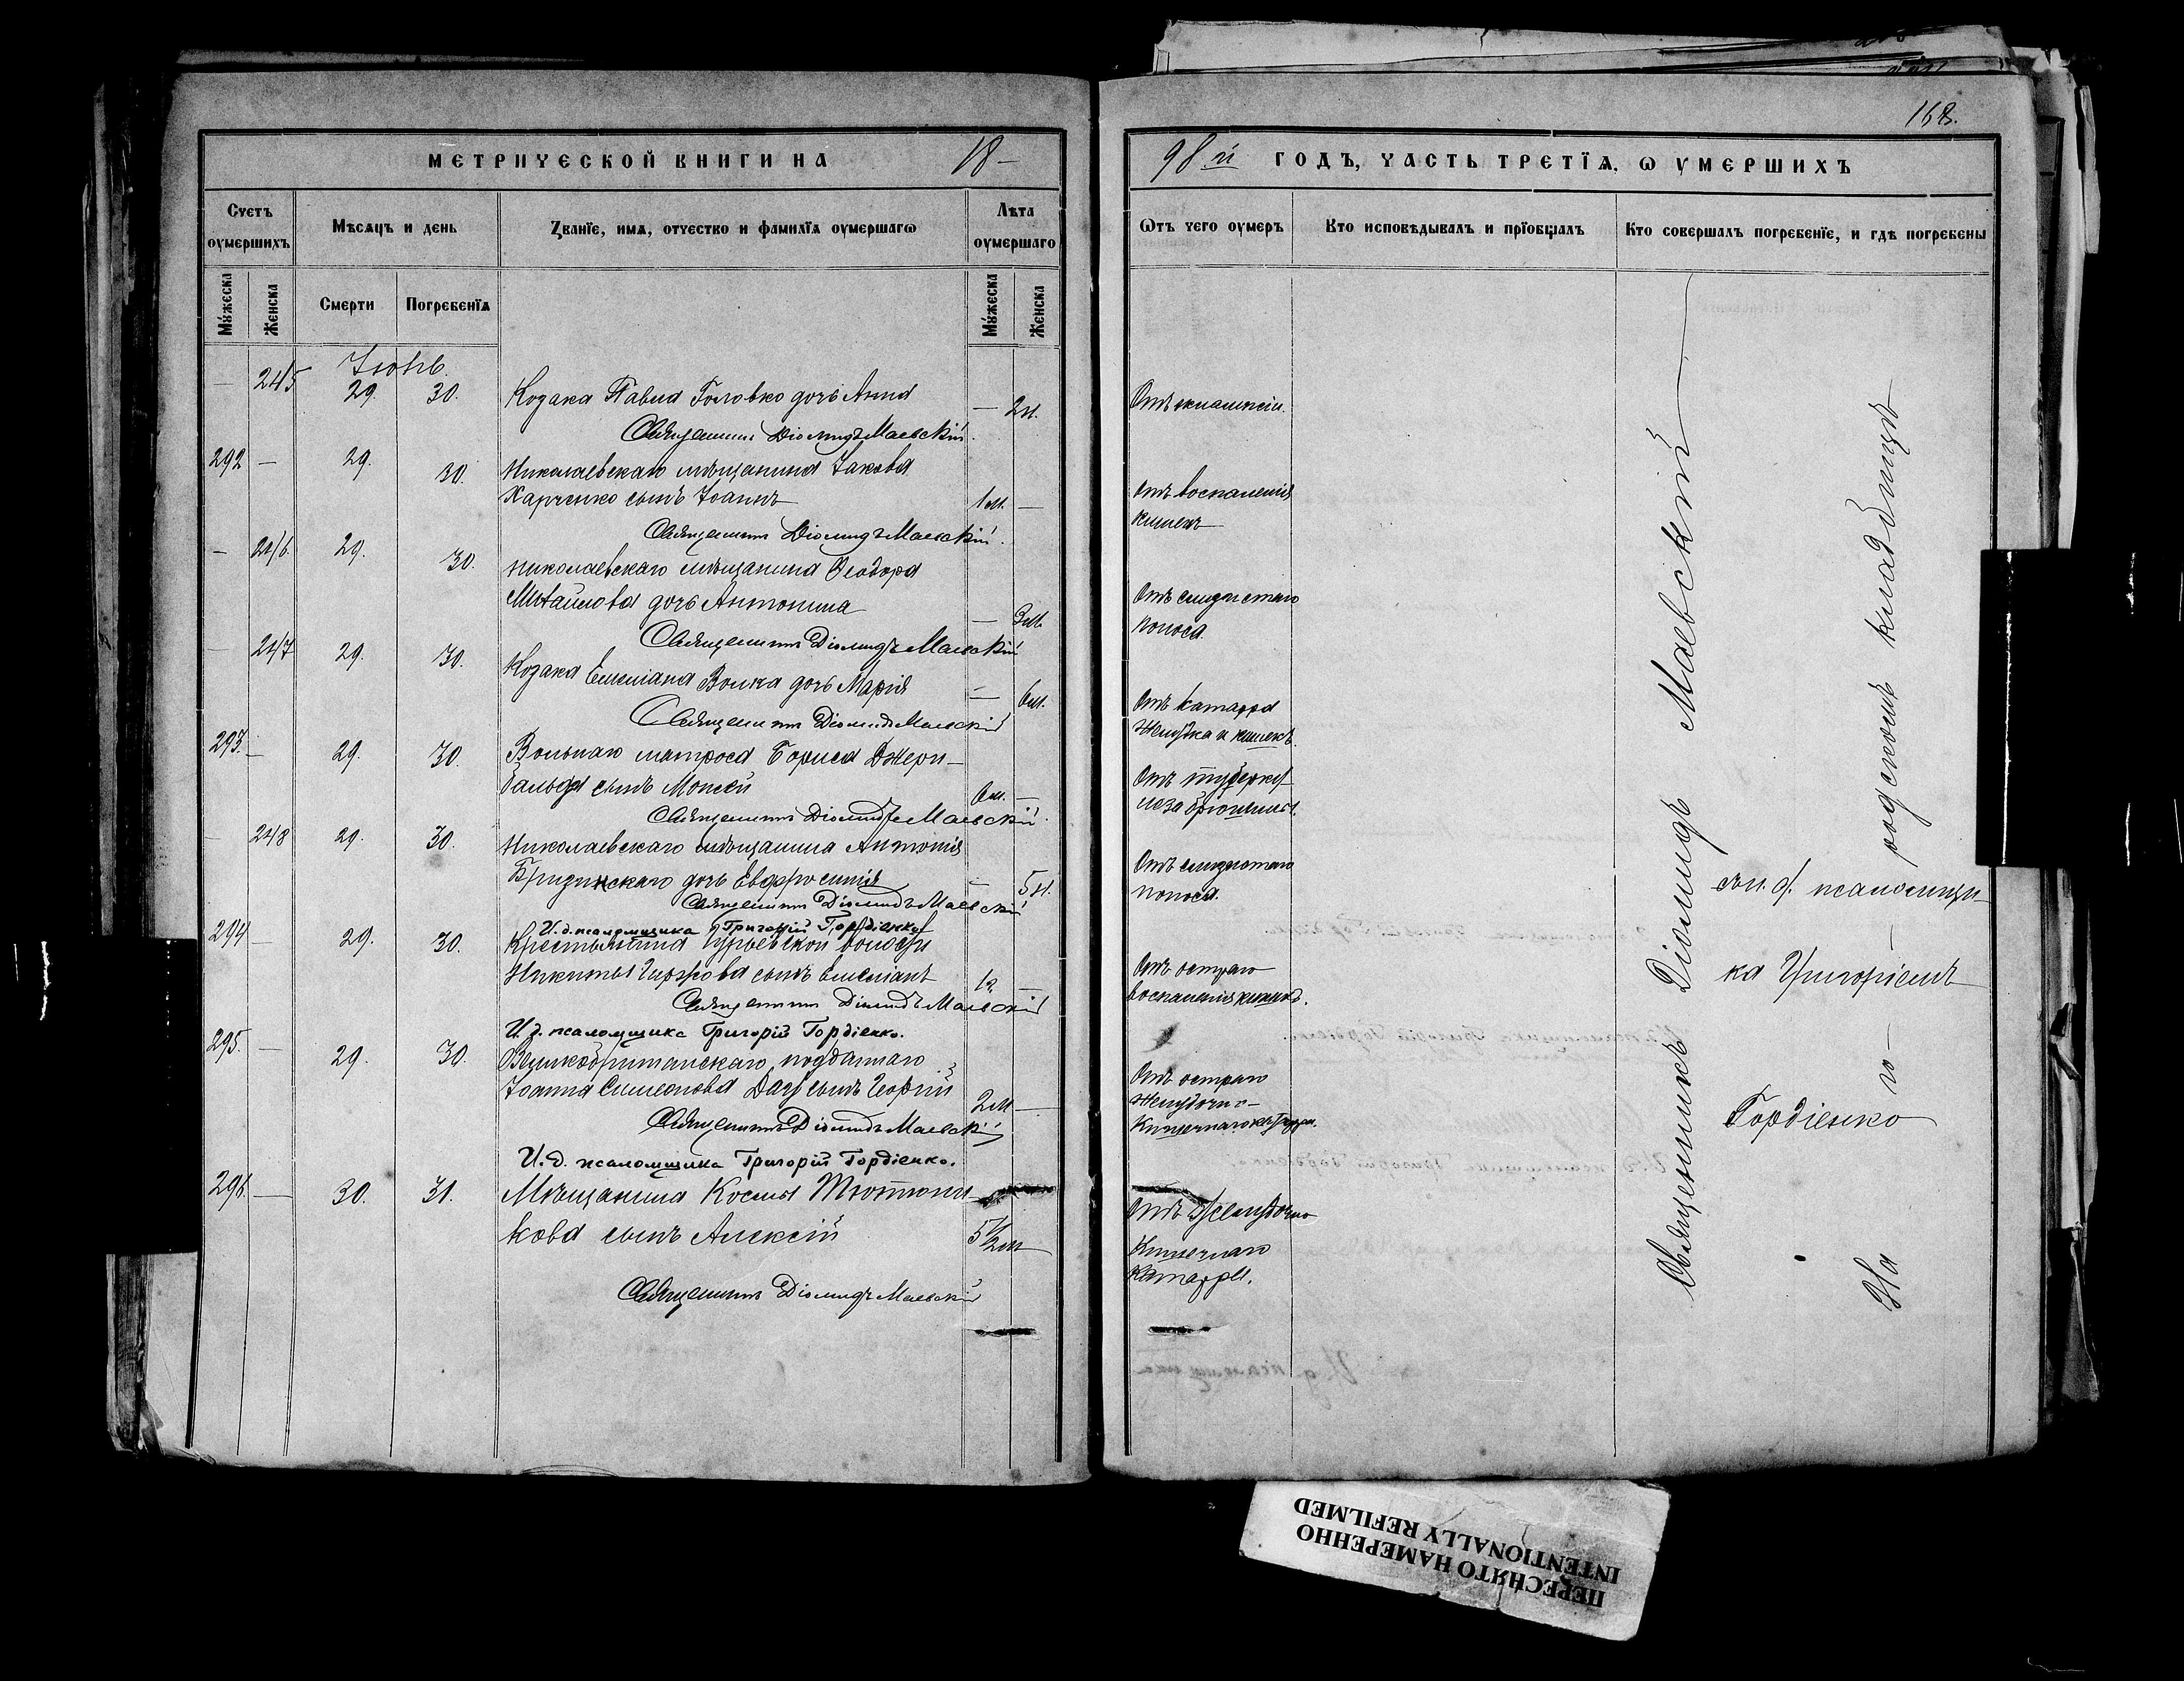 МЕТРИЧЕСКОЙ КНИГИ НА 18–
Счетъ оумершихъ
Мѣсяцъ и день
Званїе, имя, отчество и фамилїя оумершагѡ
Лѣта оумершаго
Мужеска
Женска
Смерти
Погребенїя
Мужеска
Женска
Июнь.
– 245 29. 30. Козака Павла Головко дочь Анна – 2м.
Священникъ Діомидъ Маевскій.
292 – 29. 30. Николаевскаго мѣщанина Іакова
Харченко сынъ Іоаннъ 1м. –
Священникъ Діомидъ Маевскій.
– 246 29. 30. Николаевскаго мѣщанина Ѳеодора
Михайлова дочь Антонина – 3м.
Священникъ Діомидъ Маевскій
– 247 29. 30. Козака Емиліана Волка дочь Марія – 6м.
Священникъ Діомидъ Маевскій
293. – 29. 30. Вольнаго матроса Бориса Джери–
бальда сынъ Моисей 6м. –
Священникъ Діомидъ Маевскій.
– 248 29. 30. Николаевскаго мѣщанина Антонія
дочь Евфросинія – 5м.
Священникъ Діомидъ Маевскій
И. д. псаломщика Григорій Гордіенко
294 – 29. 30. Крестьянина Гурьевской волости
Никиты сынъ Емиліанъ 1г. –
Священникъ Діомидъ Маевскій
И. д. псаломщика Григорій Гордіенко.
295. – 29. 30. Великобританскаго подданнаго
Іоанна Симеонова сынъ Георгій 2м –
Священникъ Діомидъ Маевскій
И. д. псаломщика Григорій Гордіенко.
296. – 30. 31. Мѣщанина Космы Тютюни–
кова сынъ Алексій 5½м
Священникъ Діомидъ Маевскій
168.
98й ГОДЪ, ЧАСТЬ ТРЕТЇЯ, Ѡ УМЕРШИХЪ
Ѡтъ чего оумеръ
Кто исповѣдывалъ и прїобщалъ
Кто совершалъ погребенїе, и гдѣ погребены
Отъ эклампсіи.
Отъ воспаленія
кишекъ
Отъ слизистаго
поноса.
Отъ катарра
желудка и кишекъ.
Отъ туберку–
леза брюшины.
Отъ слизистаго
поноса.
Отъ остраго
воспаленія кишекъ.
Отъ остраго
желудочно–
кишечнаго катарра.
Отъ желудочно
кишечнаго
катарра.
Священникъ Діомидъ Маевскій
съ и. д. псаломщи–
ка Григоріемъ
Гордіенко
На го–
родскомъ кладбищѣ
ПЕРЕСНЯТО НАМЕРЕННО
INTENTIONALLY REFILMED